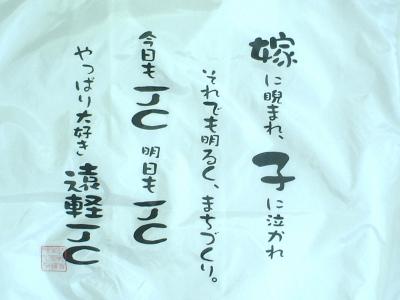 嫁に睨まれ、子に泣かれ
それでも明るく、まちづくり。
今日もJC 明日もJC
やっぱり大好き遠軽JC